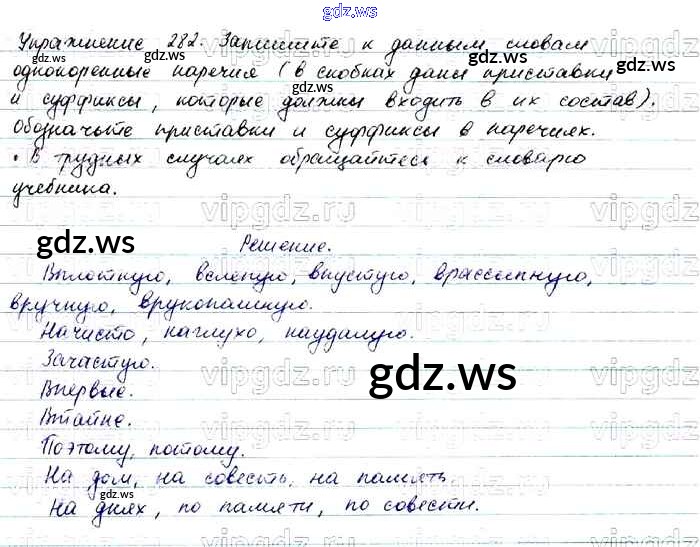 gdz.ws
Упражнение 282. Запишите к данным словам
gdz.ws
однокоренные наречия (в скобках даны приставки
gdz.ws
и суффиксы, которые должны входить в их состав).
gdz.ws
Обозначьте приставки и суффиксы в наречиях.
• В трудных случаях обращайтесь к словарю
учебника.
vipgdz.ru vipgdz.ru vipgdz.ru
gdz.ws
Решение.
Вплотную, вслепую, впустую, врассыпную,
вручную, врукопашную.
gdz.ws
Начисто, наглухо, наудалую.
Зачастую.
gdz.ws
Впервые.
gdz.ws
Втайне.
Поэтому, потому.
На дом, на совесть, на память
gdz.ws
На днях, по памяти, по совести.
gdz.ws